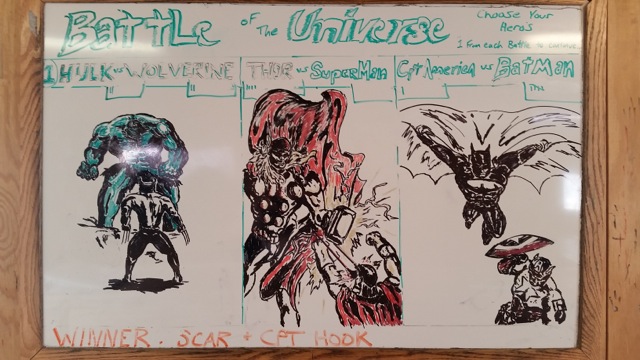 Battle of The Universe
Choose Your
Heros
1 From each Battle to continue
1) HULK vs WOLVERINE
THOR vs SuperMan
Cpt America vs BatMan
WINNER. SCAR + CPT HOOK